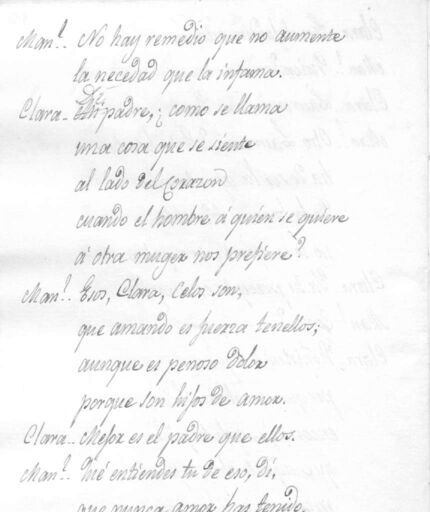 Man.l. No hay remedio que no aumente
la necedad que la infama.
Clara - Mi padre, ¿como se llama
una cosa que se siente
al lado del Corazon
cuando el hombre á quién se quiere
á otra muger nos prefiere?
Man.l. Esos, Clara, Celos son,
que amando es fuerza tenellos;
aunque es penoso dolor
porque son hijos de amor.
Clara - Mejor es el padre que ellos.
Man.l. Qué entiendes tu de eso, di,
que nunca amor has tenido.